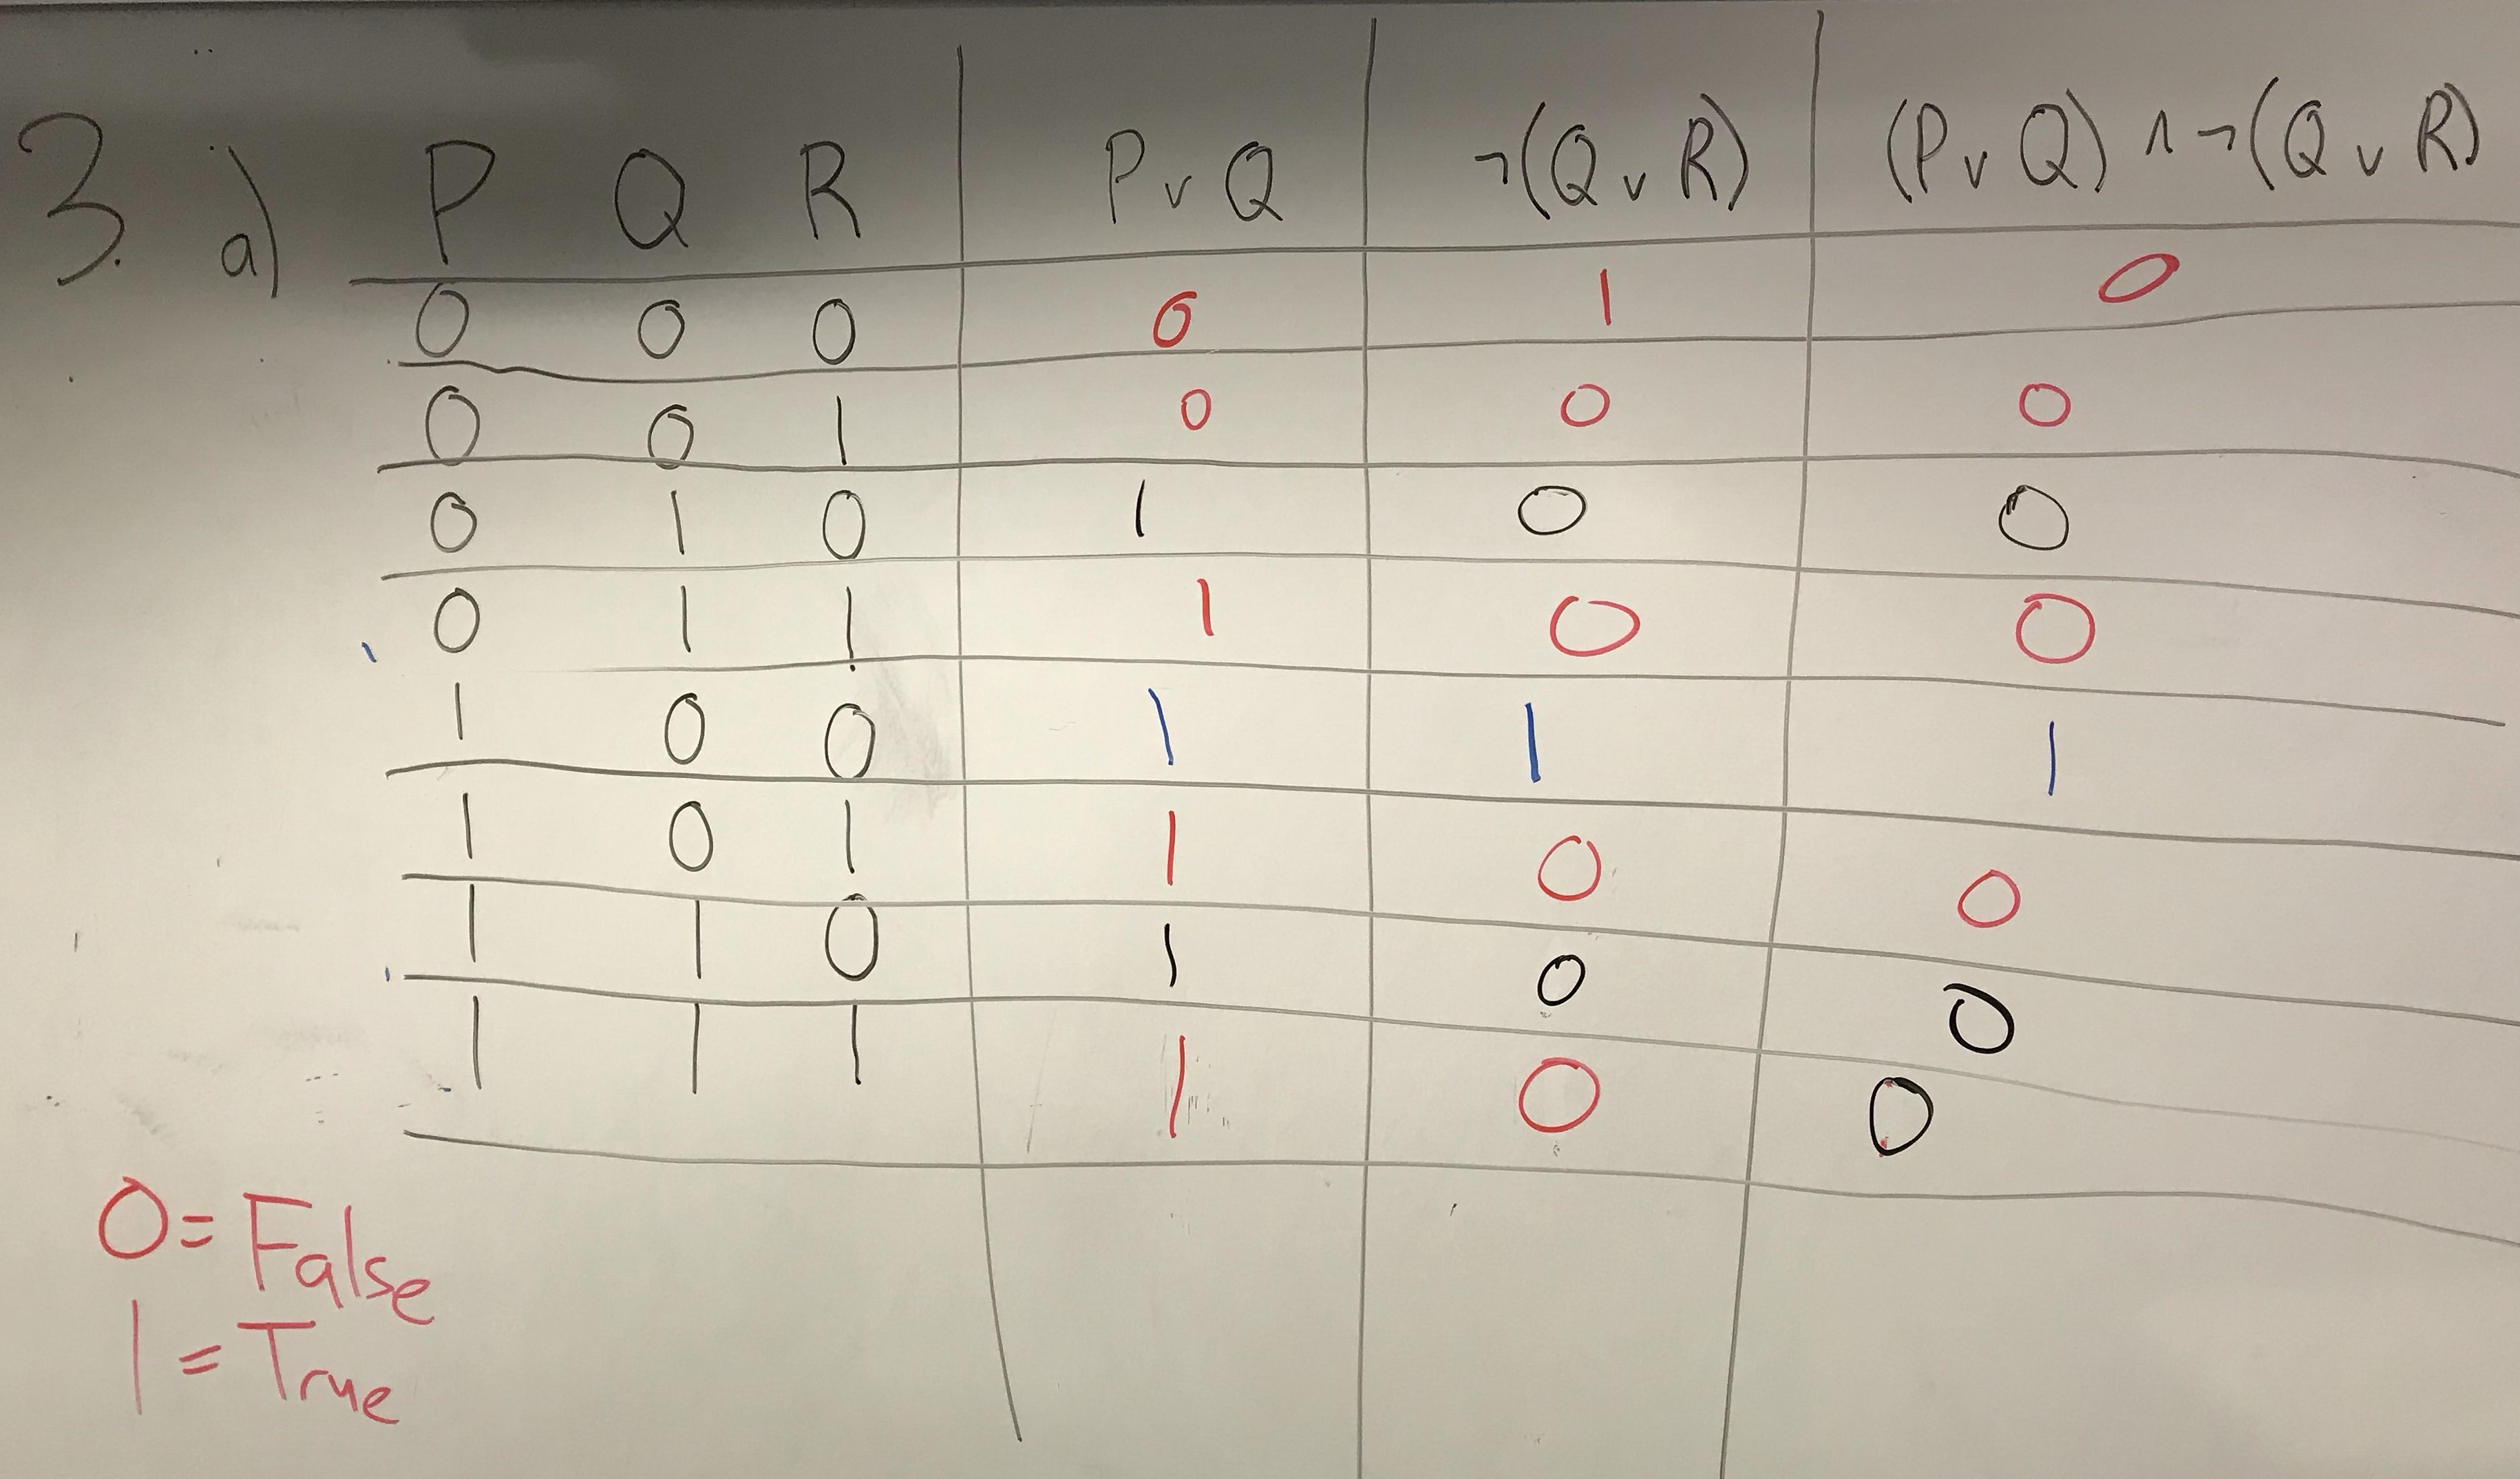 3. a) P Q R P ∨ Q ¬(Q ∨ R) (P ∨ Q) ∧ ¬(Q ∨ R)
0 0 0 0 1 0
0 0 1 0 0 0
0 1 0 1 0 0
0 1 1 1 0 0
1 0 0 1 1 1
1 0 1 1 0 0
1 1 0 1 0 0
1 1 1 1 0 0
0 = False
1 = True